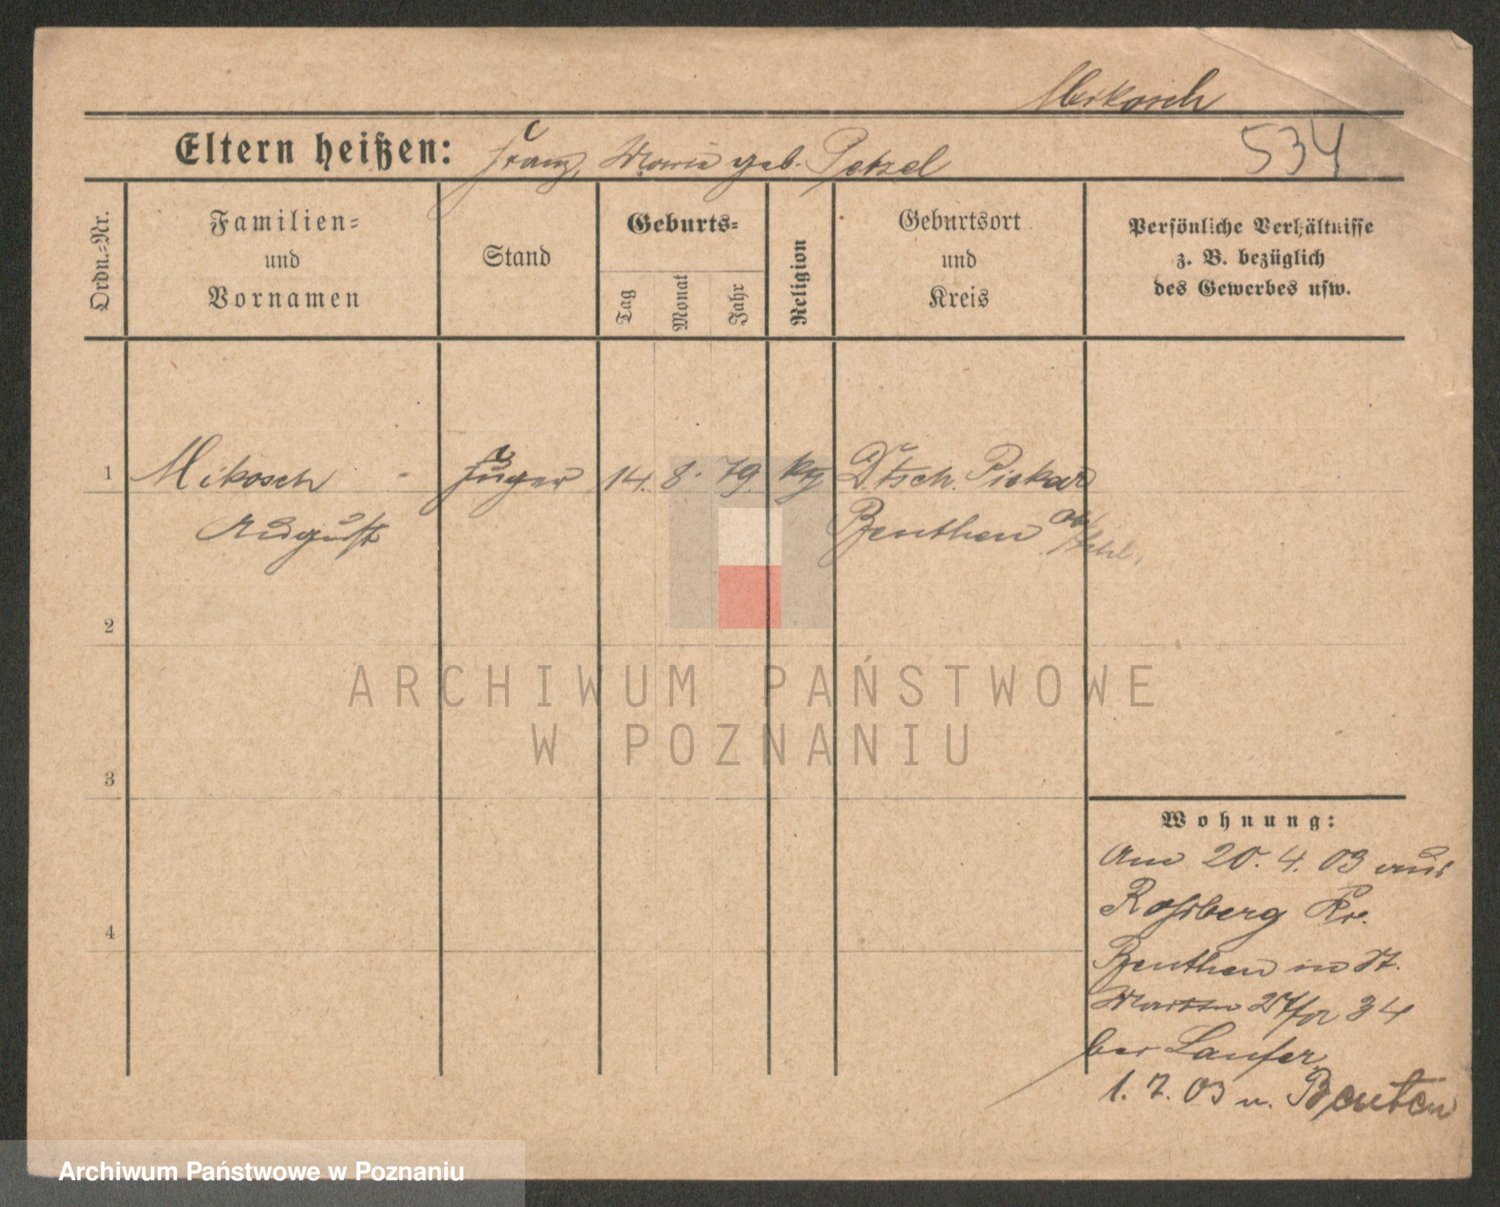 Mikosch
Eltern heißen: Franz, Marie geb. Petzel
534
Ordn.-Nr.
Familien-
und
Vornamen
Stand
Geburts-
Tag
Monat
Jahr
Religion
Geburtsort
und
Kreis
Persönliche Verhältnisse
z. B. bezüglich
des Gewerbes usw.
1
Mikosch - 14. 8. 79. D.tsch. Piekar
August Beuthen
2
3
4
ARCHIWUM PAŃSTWOWE
W POZNANIU
Wohnung:
Am 20. 4. 03 aus
Roßberg Kr.
Beuthen in St.
Martin 34
bei Laufer
1. 7. 03 n. Beuten
Archiwum Państwowe w Poznaniu